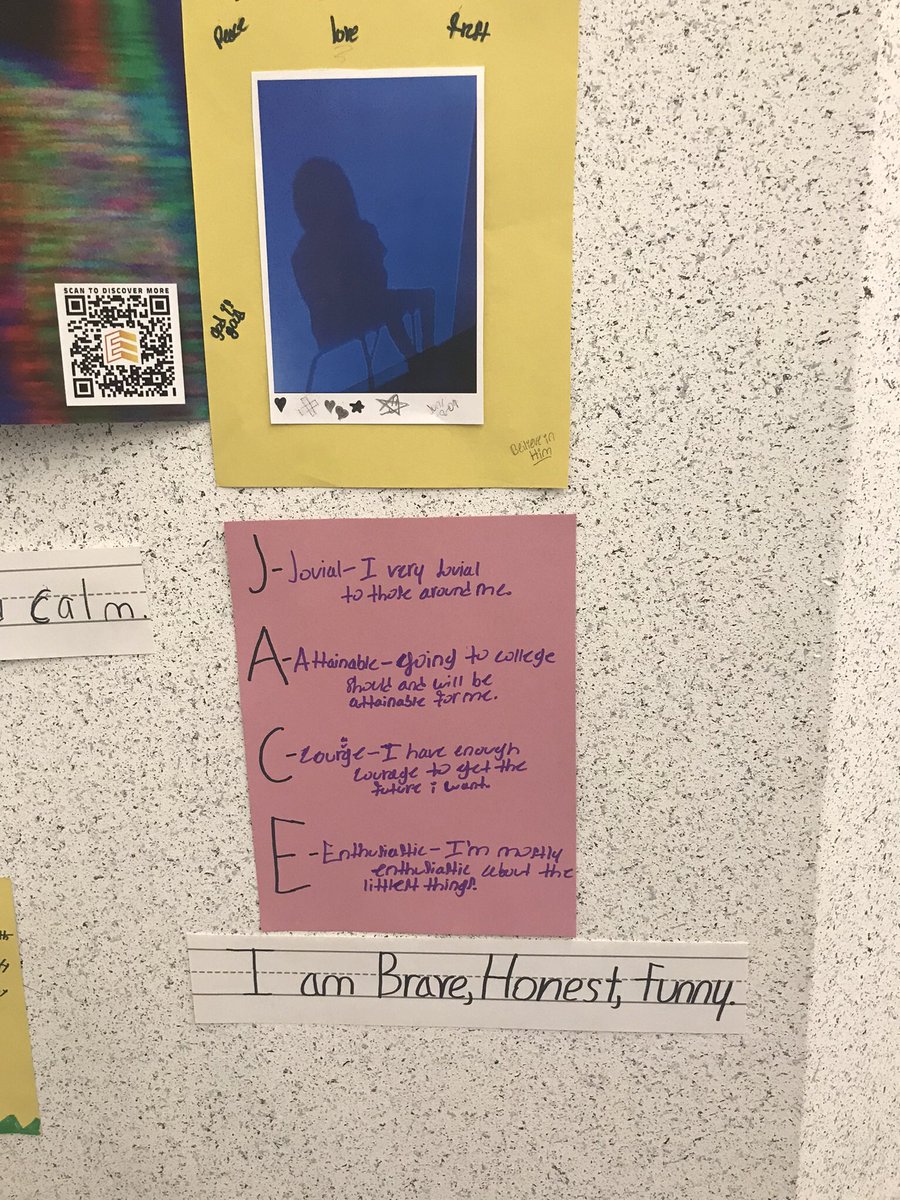 Peace love
SCAN TO DISCOVER MORE
God is
good
Believe in
Him
calm.
J-Jovial-I very Jovial
to those around me.
A-Attainable-Going to college
should and will be
attainable for me.
C-courage-I have enough
courage to get the
future i want.
E-Enthusiastic-I'm mostly
enthusiastic about the
littlest things.
I am Brave, Honest, Funny.